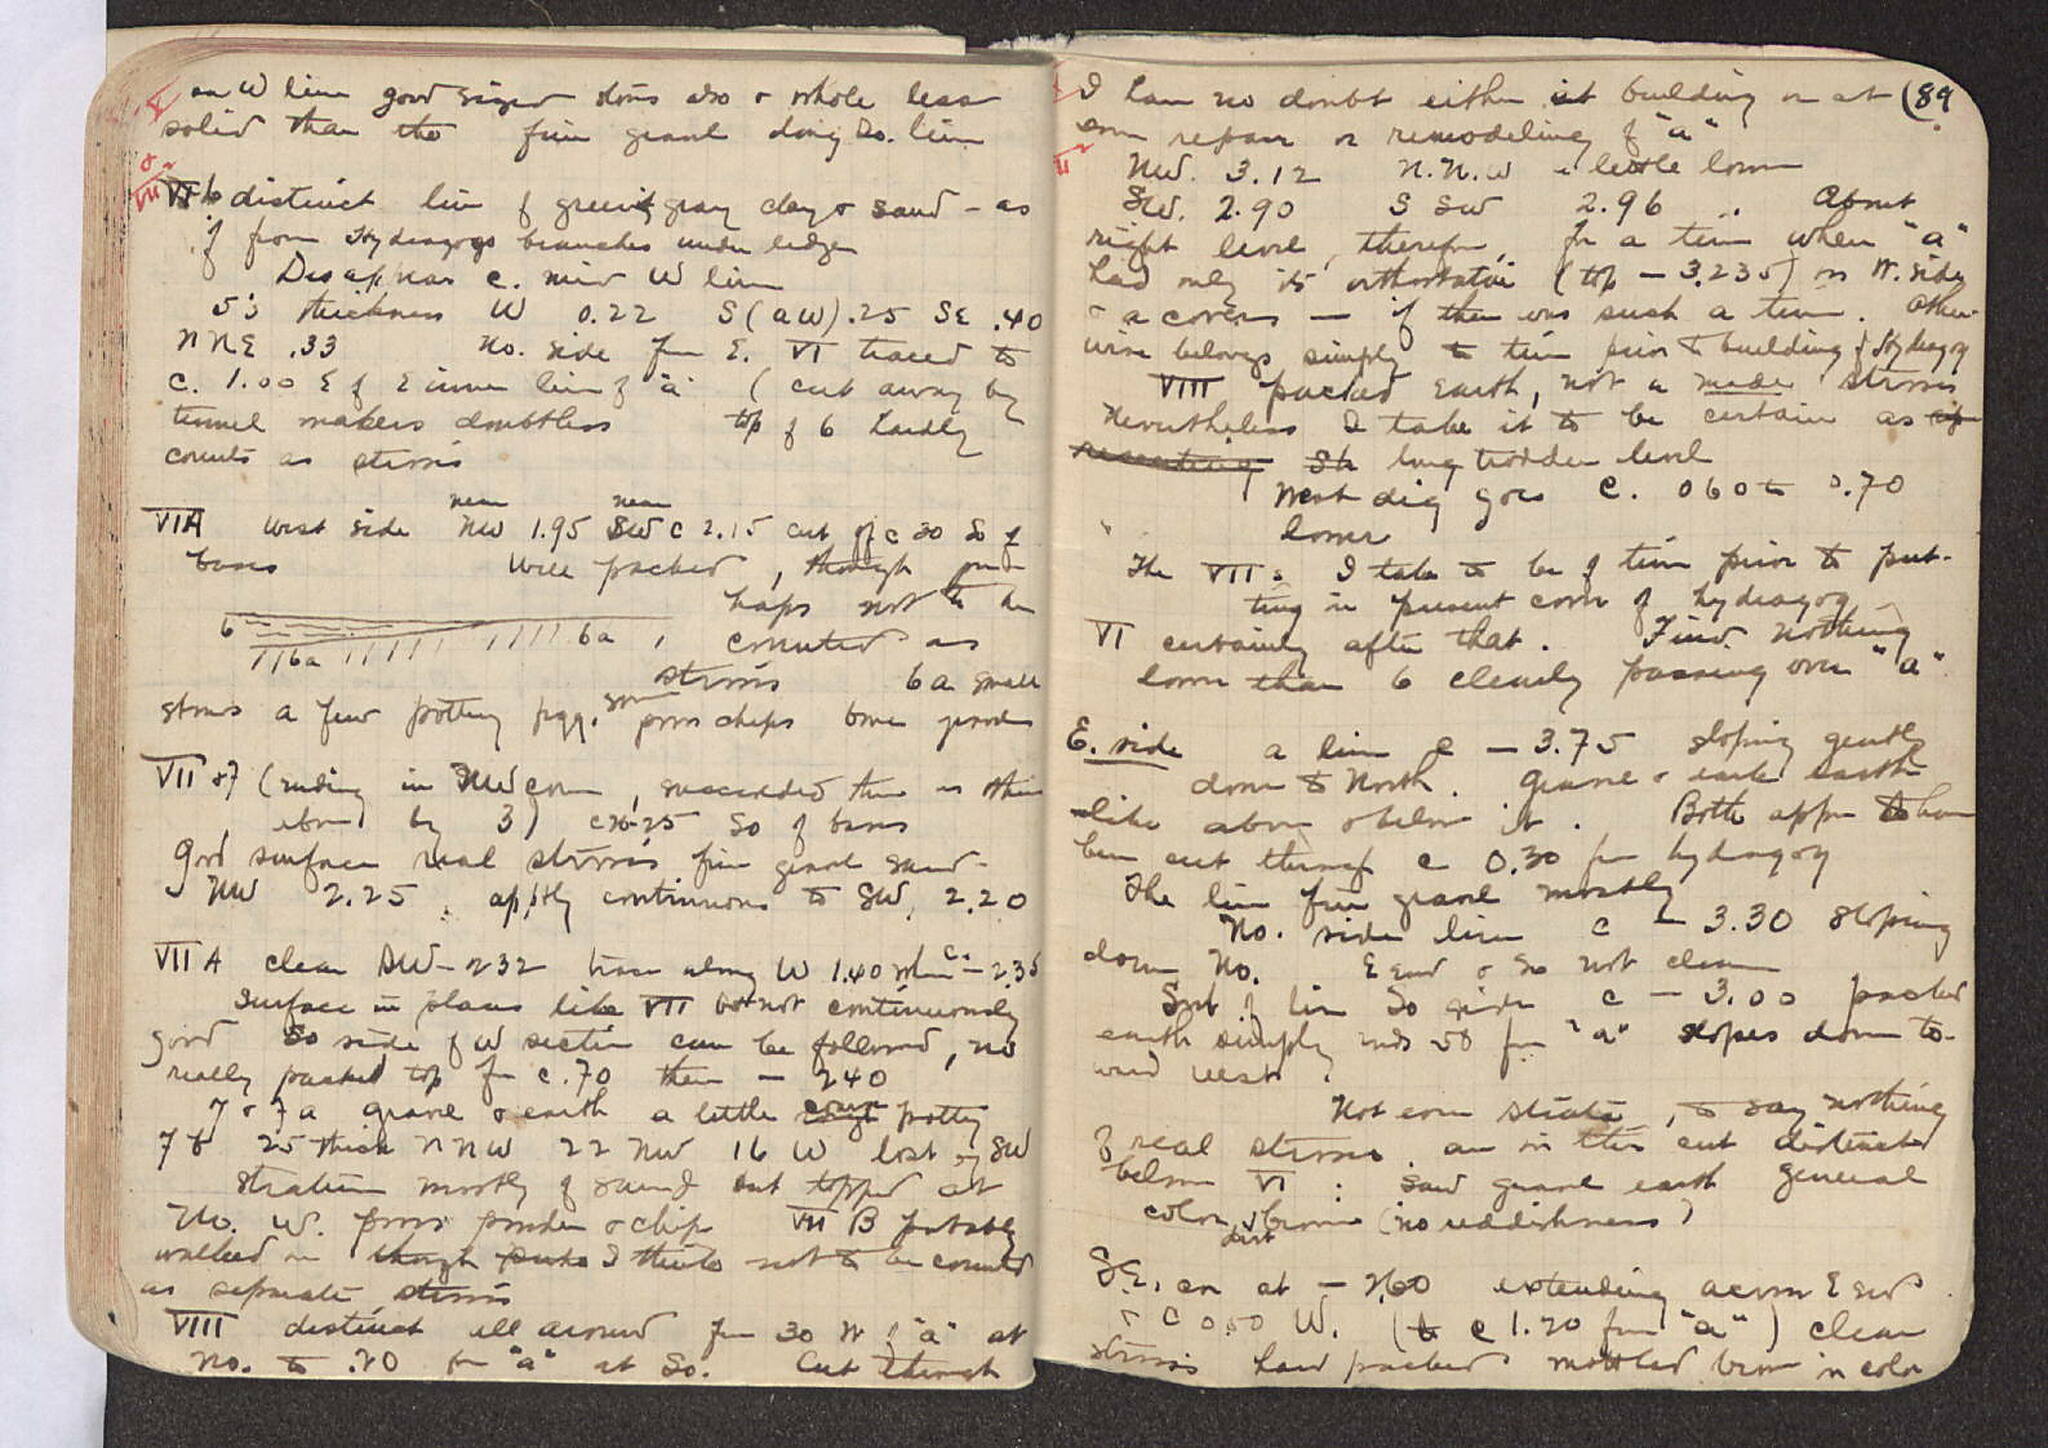 on W line good sized stones also & whole less
solid than the fine gravel along So. line
VI b distinct line of greenish gray clay & sand - as
if from Hydragogs branches under ledge
Disappears c. mid W line
5's thickness W 0.22 S (a W) .25 SE .40
NNE .33 No. side from E. VI traced to
c. 1.00 E of E inner line of "a" (cut away by
tunnel makers doubtless top of 6 hardly
counts as stroses
VIA west side near NW 1.95 near SW c 2.15 cut off c 30 So of
bases well packed, though per-
haps not to be
6 6a, counted as
6a
strosis 6a small
stones a few pottery frgg. some poros chips bone
VII & 7 (ending in NW corner, succeeded there as
by 3) c 25 So of bases
Good surface real strosis fine gravel sand-
NW 2.25 . apptly continuous to SW, 2.20
VII A clear SW - 232 trace along W 1.40 where c. - 2.35
Surface in places like VII but not continuously
good So side of W section can be followed, no
really packed top for c .70 then - 240
7 & 7a gravel & earth a little coarse pottery
7b 25 thick NNW 22 NW 16 W lost by SW
stratum mostly of sand but topped at
No. W. poros powder & chip VII B probably
walked on though I think not to be counted
as separate strosis
VIII distinct all around from 30 N of "a" at
No. to .20 from "a" at So. Cut through
I have no doubt either at building or at (89
some repair or remodeling of "a"
NW. 3.12 N.N.W a little lower
SW. 2.90 S SW 2.96 . About
right level, therefore, for a time when "a"
had only its orthostatai (top - 3.235) on W. side
& a covers — if there was such a time. Other-
wise belongs simply to time prior to building of Hydragog
VIII packed earth, not a made strosis
Nevertheless I take it to be certain as
long trodden level
West dig goes c. 0 60 to 0.70
lower
The VII s I take to be of time prior to put-
ting in present cover of hydragog
VI certainly after that. Find nothing
lower than 6 clearly passing over "a"
E. side a line c — 3.75 sloping gently
down to North. Gravel & earth
like above & below it. Both appear to have
been cut through c 0.30 from hydragog
The line fine gravel mostly
No. side line c — 3.30 sloping
down No. E end & So not clear
Sort of line So side c — 3.00 packed
earth simply ends 50 from "a" slopes down to-
ward West.
Not even strata, to say nothing
of real stroses, are in this cut distinct
below VI : sand gravel earth general
color brown (no reddishness)
S.E. cor at — 2.60 extending across E end
& c 0.50 W. (to c 1.20 from "a") clear
strosis hard packed mottled brown in color